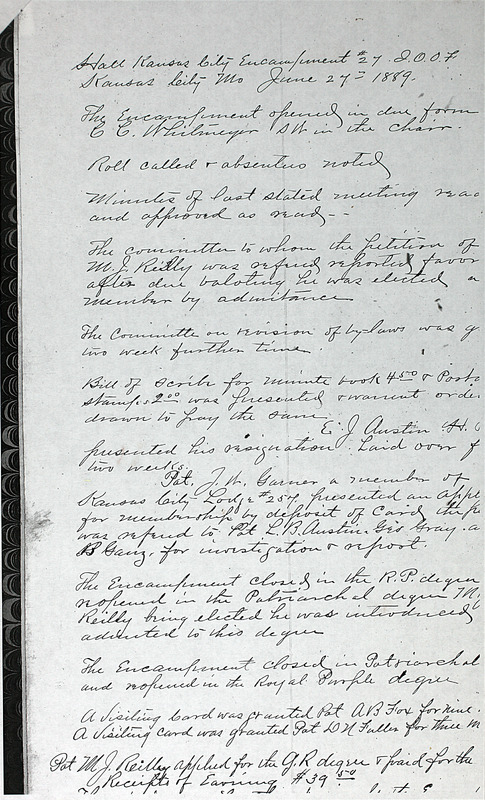 Hall Kansas City Encampment #27 I.O.O.F
Kansas City Mo June 27th 1889.
The Encampment opened in due form
C C. Whitmeyer S W in the chair.
Roll called & absentees noted
Minutes of last stated meeting read
and approved as read - -
The committee to whom the petition of
M. J. Reilly was referd reported favor
after due baloting he was elected a
member by admitance
The Committe on revision of by-laws was g
two week further time.
Bill of Scribe for minute book 4 50 & Posta
stamps 2 00 was presented & warrant order
drawn to pay the same
E. J. Austin H.
presented his resignation. Laid over f
two weeks.
Pat. J. W. Garner a member of
Kansas City Lodge #257, presented an appl
for membership by deposit of Card the pe
was referd to Pat L. B. Austin. Geo Gray. a
B Ganz. for investigation & report.
The Encampment closed in the R. P. degree
reopened in the Patriarchal degree M.
Reilly being elected he was introduced
admited to this degree
The Encampment closed in Patriarchal
and reopened in the Royal Purple degree
A Visiting Card was granted Pat A B Fox for nine.
A Visiting card was granted Pat D N Fuller for three M
Pat M. J. Reilley applied for the G. R degree & paid for the
Receipts of Evening #39 50